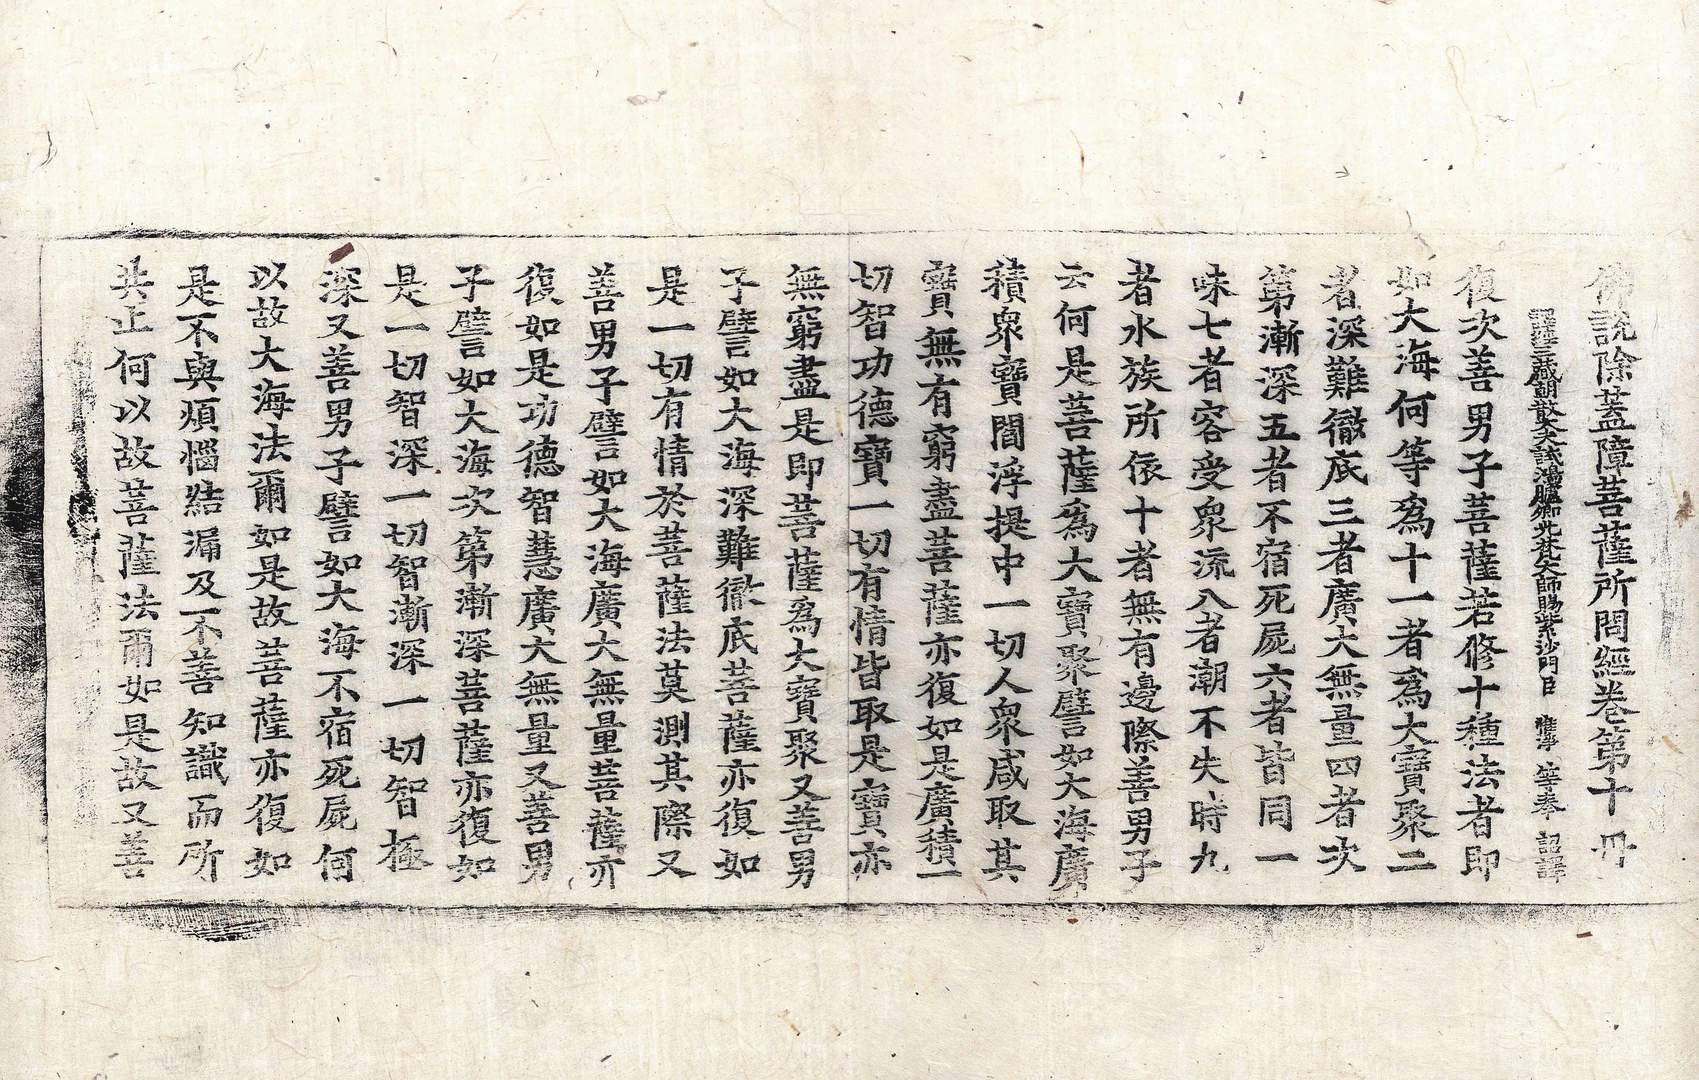 佛說除蓋障菩薩所問經卷第十 冊
譯經三藏朝散大夫試鴻臚卿光梵大師賜紫沙門臣 惟淨 等奉 詔譯
復次善男子菩薩若修十種法者即
如大海何等爲十一者爲大寶聚二
者深難徹底三者廣大無量四者次
第漸深五者不宿死屍六者皆同一
味七者容受衆流八者潮不失時九
者水族所依十者無有邊際善男子
云何是菩薩爲大寶聚譬如大海廣
積衆寶閻浮提中一切人衆咸取其
寶無有窮盡菩薩亦復如是廣積一
切智功德寶一切有情皆取是寶亦
無窮盡是即菩薩爲大寶聚又善男
子譬如大海深難徹底菩薩亦復如
是一切有情於菩薩法莫測其際又
善男子譬如大海廣大無量菩薩亦
復如是功德智慧廣大無量又善男
子譬如大海次第漸深菩薩亦復如
是一切智深一切智漸深一切智極
深又善男子譬如大海不宿死屍何
以故大海法爾如是故菩薩亦復如
是不與煩惱結漏及不善知識而所
共止何以故菩薩法爾如是故又善